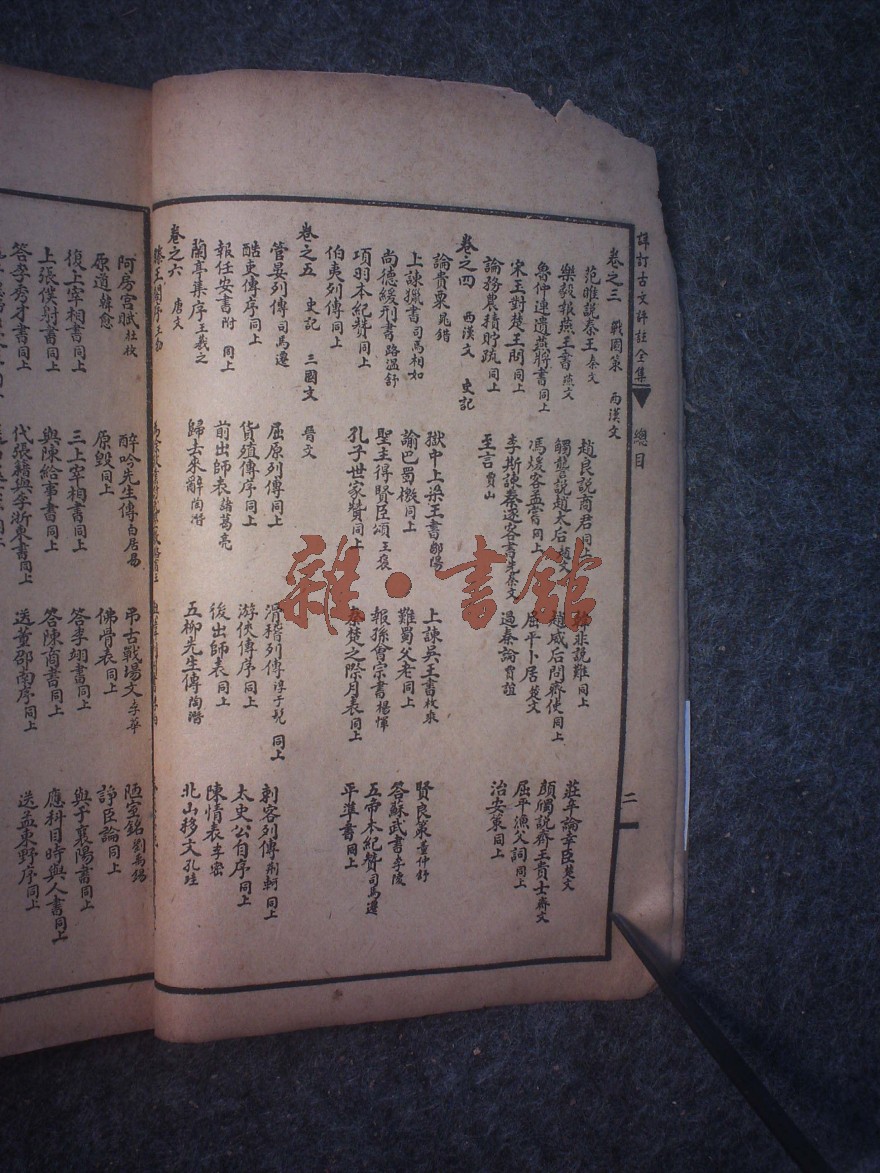 詳訂古文評註全集 總目 二
卷之三 戰國策 西漢文
范睢說秦王秦文 趙良說商君同上 韓非說難同上 莊辛論幸臣楚文
樂毅報燕王書燕文 觸讋說趙太后趙文 趙威后問齊使同上 顏斶說齊王貴士齊文
魯仲連遺燕將書同上 馮煖客孟嘗同上 屈平卜居楚文 屈平漁父詞同上
宋玉對楚王問同上 李斯諫秦逐客書先秦文 過秦論賈誼 治安策同上
論務農積貯疏同上 至言賈山
卷之四 西漢文 史記
論貴粟晁錯 獄中上梁王書鄒陽 上諫吳王書枚乘 賢良策董仲舒
上諫獵書司馬相如 諭巴蜀檄同上 難蜀父老同上 答蘇武書李陵
尚德緩刑書路溫舒 聖主得賢臣頌王褒 報孫會宗書楊惲 五帝本紀贊司馬遷
項羽本紀贊同上 孔子世家贊同上 秦楚之際月表同上 平準書同上
伯夷列傳同上
卷之五 史記 三國文 晉文
管晏列傳司馬遷 屈原列傳同上 滑稽列傳淳于髡 同上 刺客列傳荆軻 同上
酷吏傳序同上 貨殖傳序同上 游俠傳序同上 太史公自序同上
報任安書附 同上 前出師表諸葛亮 後出師表同上 陳情表李密
蘭亭集序王羲之 歸去來辭陶潛 五柳先生傳陶潛 北山移文孔珪
卷之六 唐文
滕王閣序王勃
阿房宮賦杜牧 醉吟先生傳白居易 弔古戰場文李華 陋室銘劉禹錫
原道韓愈 原毀同上 佛骨表同上 諍臣論同上
復上宰相書同上 三上宰相書同上 答李翊書同上 與于襄陽書同上
上張僕射書同上 與陳給事書同上 答陳商書同上 應科目時與人書同上
答李秀才書同上 代張籍與李浙東書同上 送董邵南序同上 送孟東野序同上
雜·書館